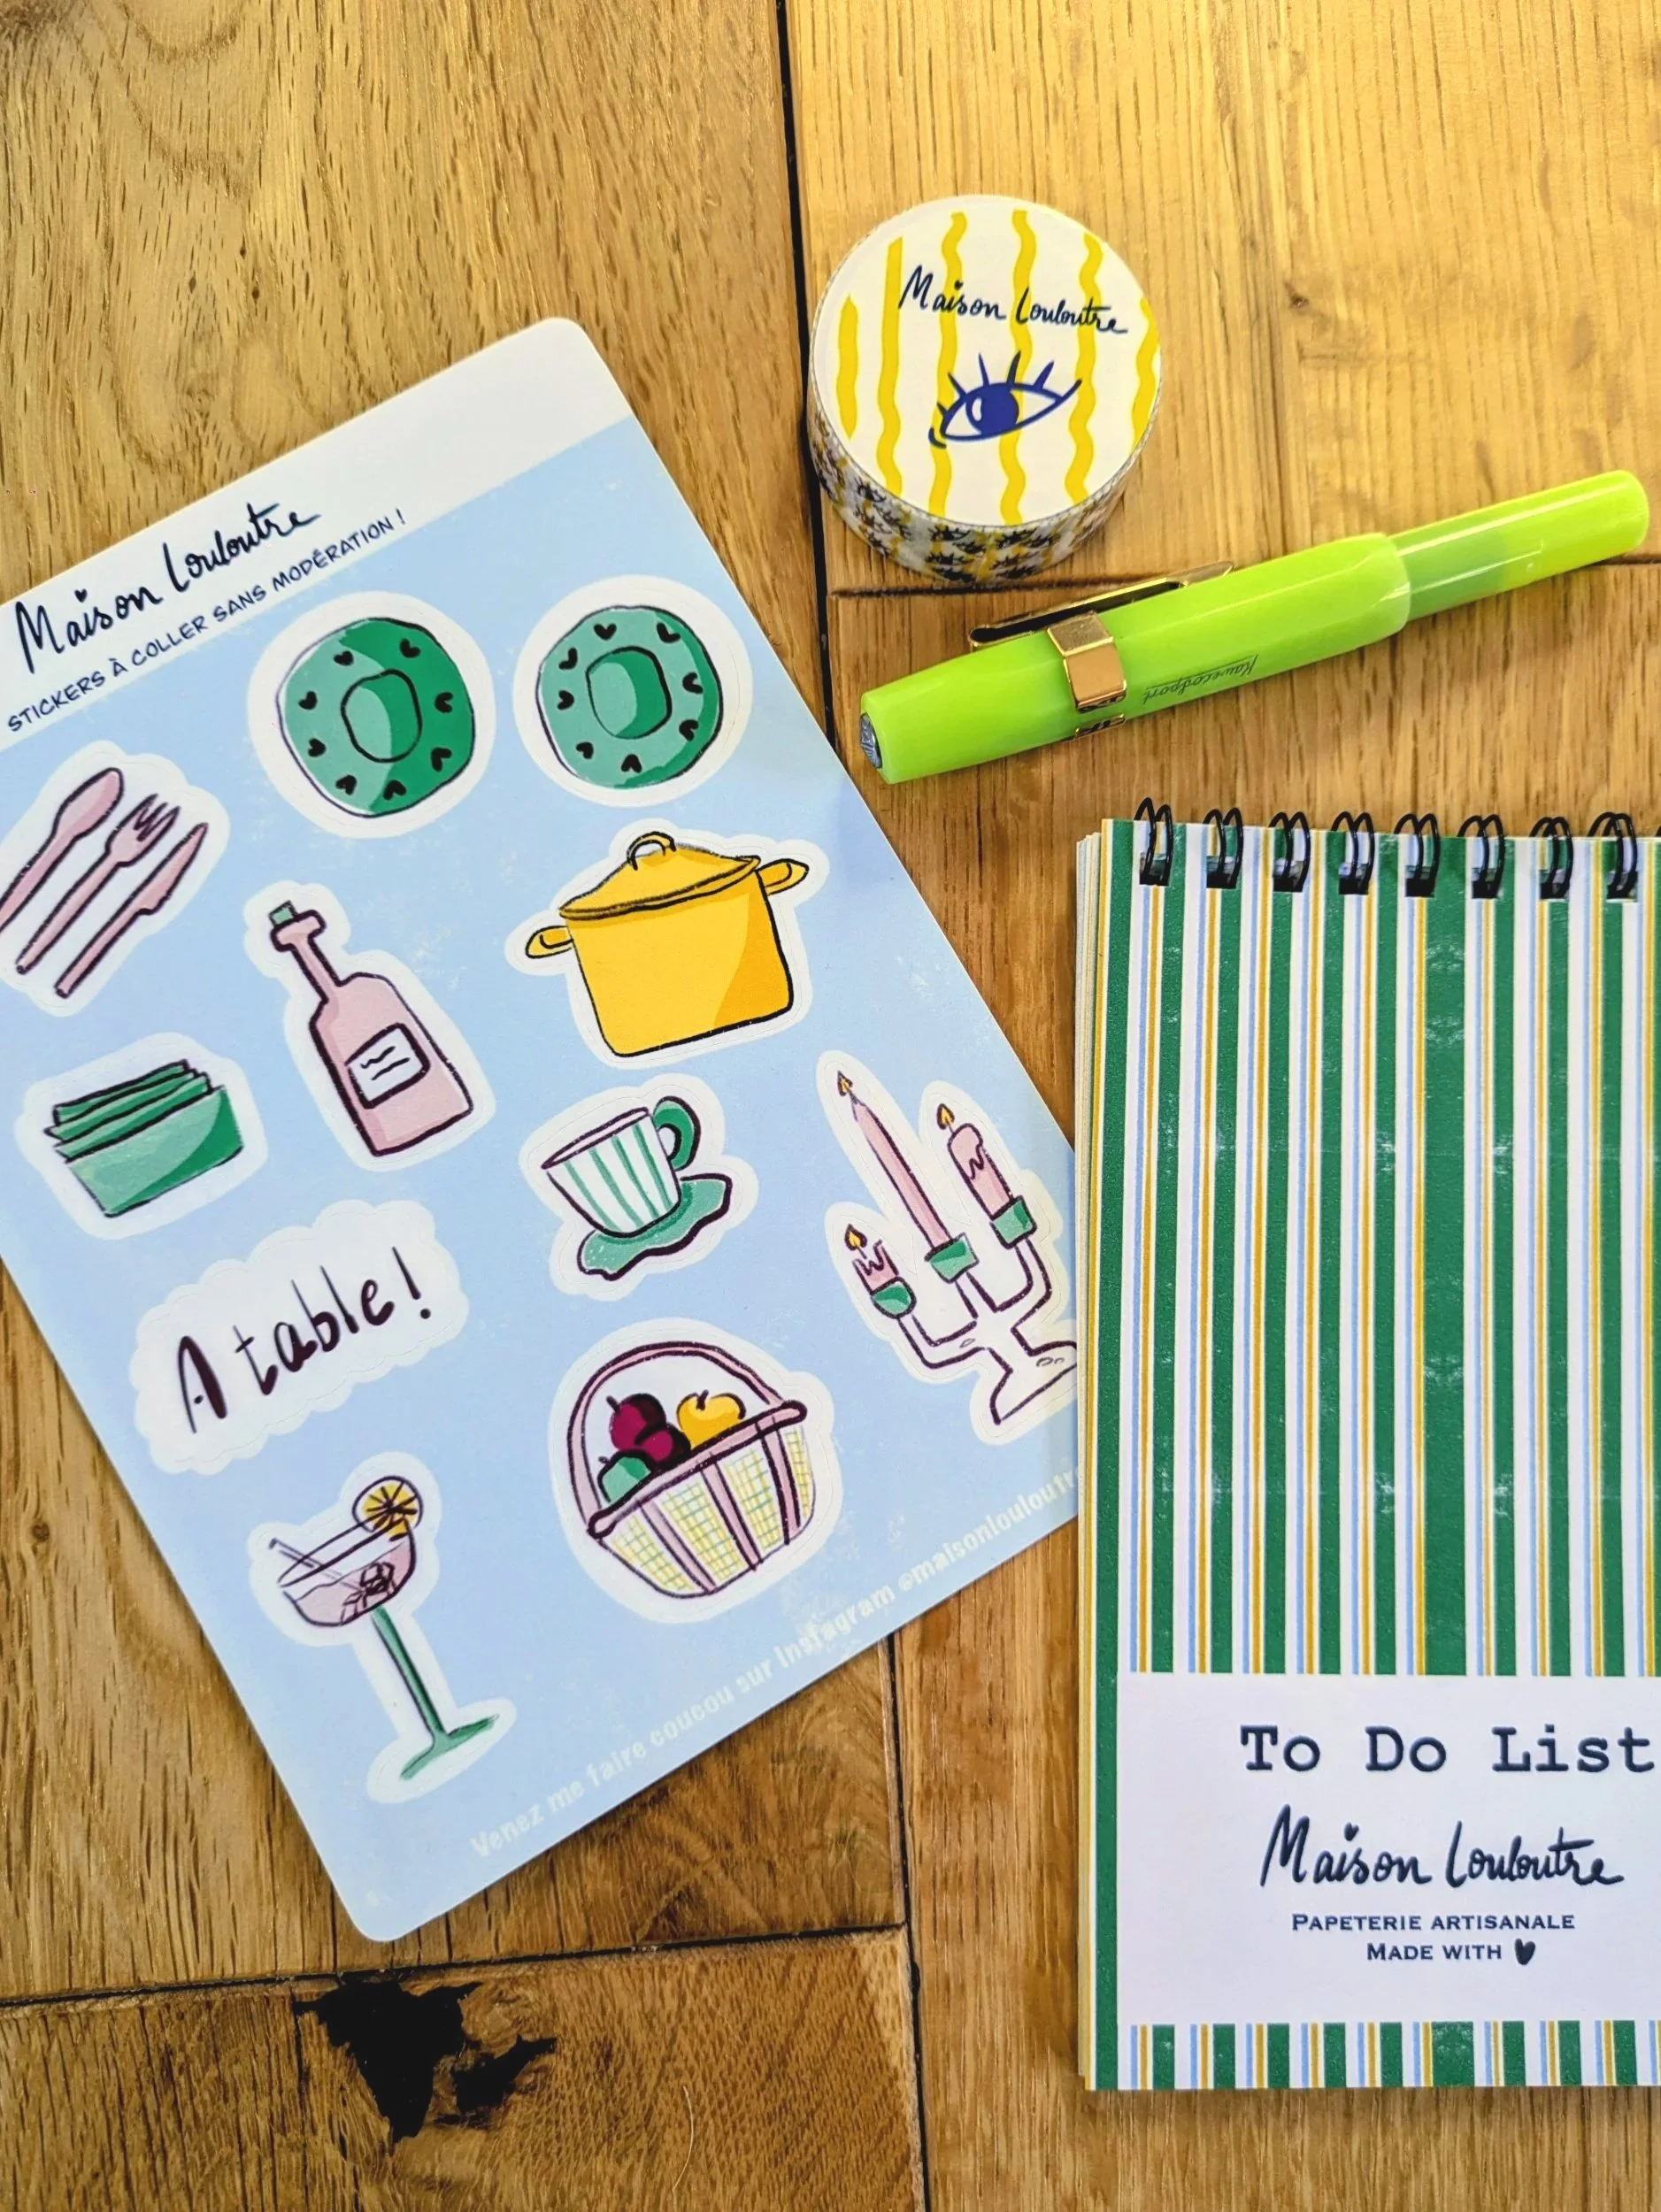 Maison Louloutre
STICKERS À COLLER SANS MODÉRATION !
A table !
Venez me faire coucou sur Instagram @maisonlouloutre
Maison Louloutre
Kaweco Sport
To Do List
Maison Louloutre
PAPETERIE ARTISANALE
MADE WITH